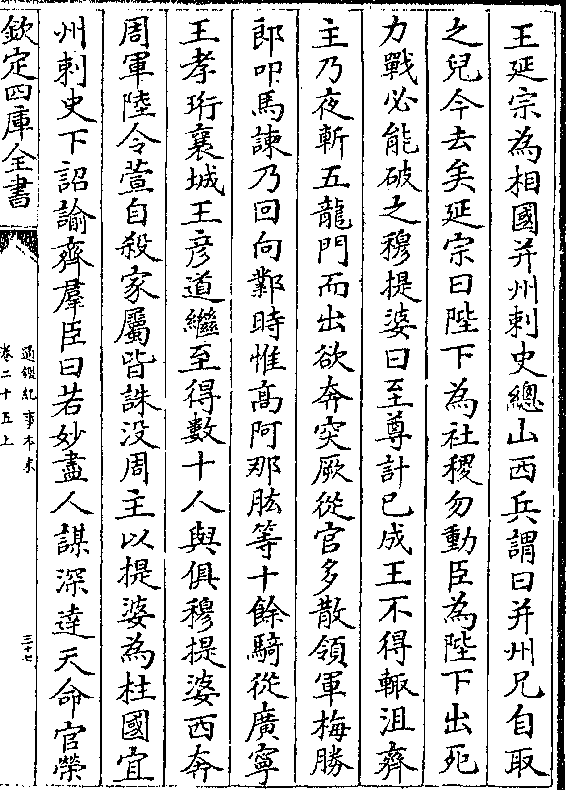 王延宗為相國并州刺史總山西兵謂曰并州兄自取
之兒今去矣延宗曰陛下為社稷勿動臣為陛下出死
力戰必能破之穆提婆曰至尊計已成王不得輙沮齊
主乃夜斬五龍門而出欲奔突厥從官多散領軍梅勝
郎叩馬諫乃回向鄴時惟高阿那肱等十餘騎從廣寧
王孝珩襄城王彦道繼至得數十人與俱穆提婆西奔
周軍陸令萱自殺家屬皆誅没周主以提婆為柱國宜
州刺史下詔諭齊羣臣曰若妙盡人謀深達天命官榮
欽定四庫全書
通鑑紀事本末
卷二十五上
三十七